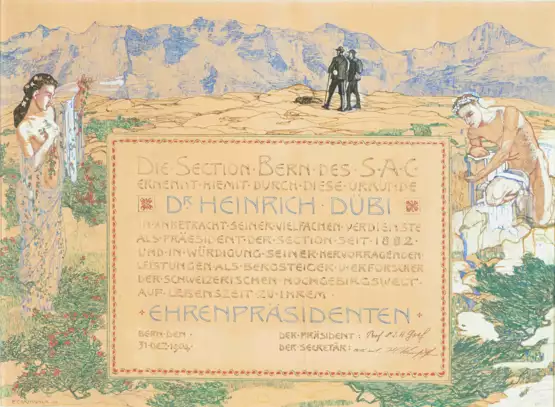 DIE SECTION BERN DES S.A.C.
ERNENNT HIEMIT DURCH DIESE URKUNDE
DR HEINRICH DÜBI
IN ANBETRACHT SEINER VIELFACHEN VERDIENSTE
ALS PRAESIDENT DER SECTION SEIT 1882
UND IN WÜRDIGUNG SEINER HERVORRAGENDEN
LEISTUNGEN ALS BERGSTEIGER U. ERFORSCHER
DER SCHWEIZERISCHEN HOCHGEBIRGSWELT
AUF LEBENSZEIT ZU IHREM
EHRENPRÄSIDENTEN
BERN DEN
31. DEZ. 1904
DER PRÄSIDENT: Prof. Dr. Graf
DER SECRETÄR: